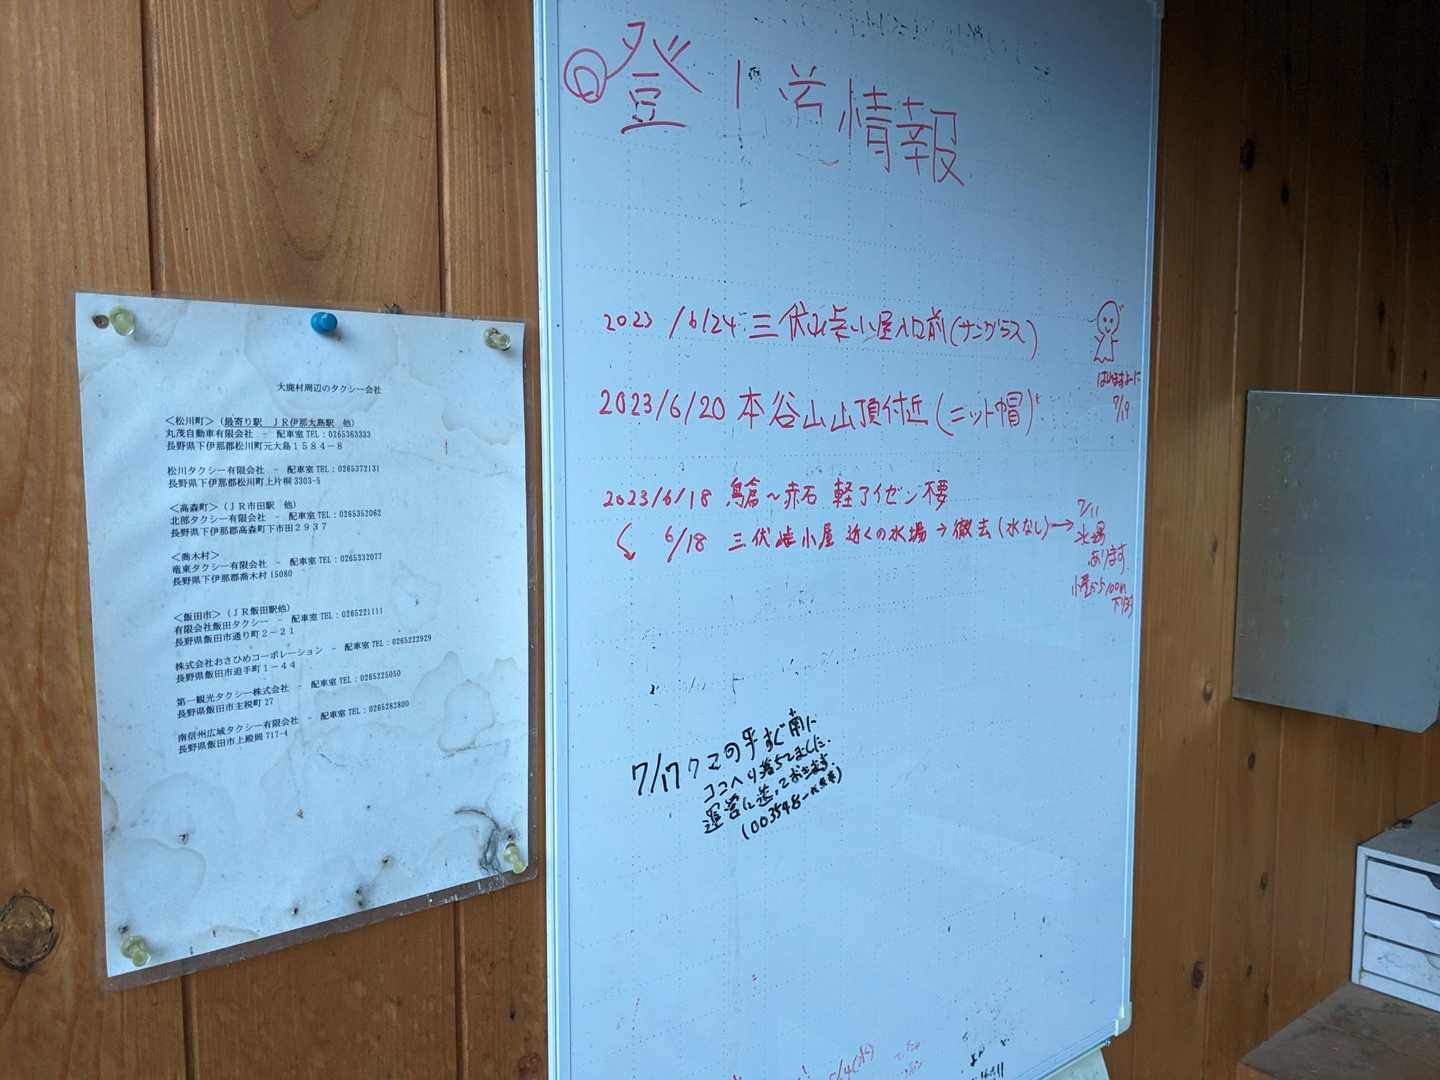 大鹿村周辺のタクシー会社
<松川町>(最寄り駅 JR伊那大島駅 他)
丸茂自動車有限会社 - 配車室TEL:0265363333
長野県下伊那郡松川町元大島1584-8
松川タクシー有限会社 - 配車室TEL:0265372131
長野県下伊那郡松川町上片桐3303-5
<高森町>(JR市田駅 他)
北部タクシー有限会社 - 配車室TEL:0265352062
長野県下伊那郡高森町下市田2937
<喬木村>
竜東タクシー有限会社 - 配車室TEL:0265332077
長野県下伊那郡喬木村15080
<飯田市>(JR飯田駅他)
有限会社飯田タクシー - 配車室TEL:0265221111
長野県飯田市通り町2-21
株式会社おさひめコーポレーション - 配車室TEL:0265222929
長野県飯田市追手町1-44
第一観光タクシー株式会社 - 配車室TEL:0265225050
長野県飯田市主税町27
南信州広域タクシー有限会社 - 配車室TEL:0265282800
長野県飯田市上殿岡717-4
登山道情報
2023/6/24 三伏山峠小屋入口前(サングラス)
2023/6/20 本谷山山頂付近(ニット帽)
2023/6/18 烏倉~赤石 軽アイゼン不要
6/18 三伏峠小屋近くの水場→撤去(水なし)→7/11
水場
あります
小屋から100m
下り
7/19
7/17 クマの平すぐ南に
ココヘリ落ちてました。
運営に送っておきます。
(003548-